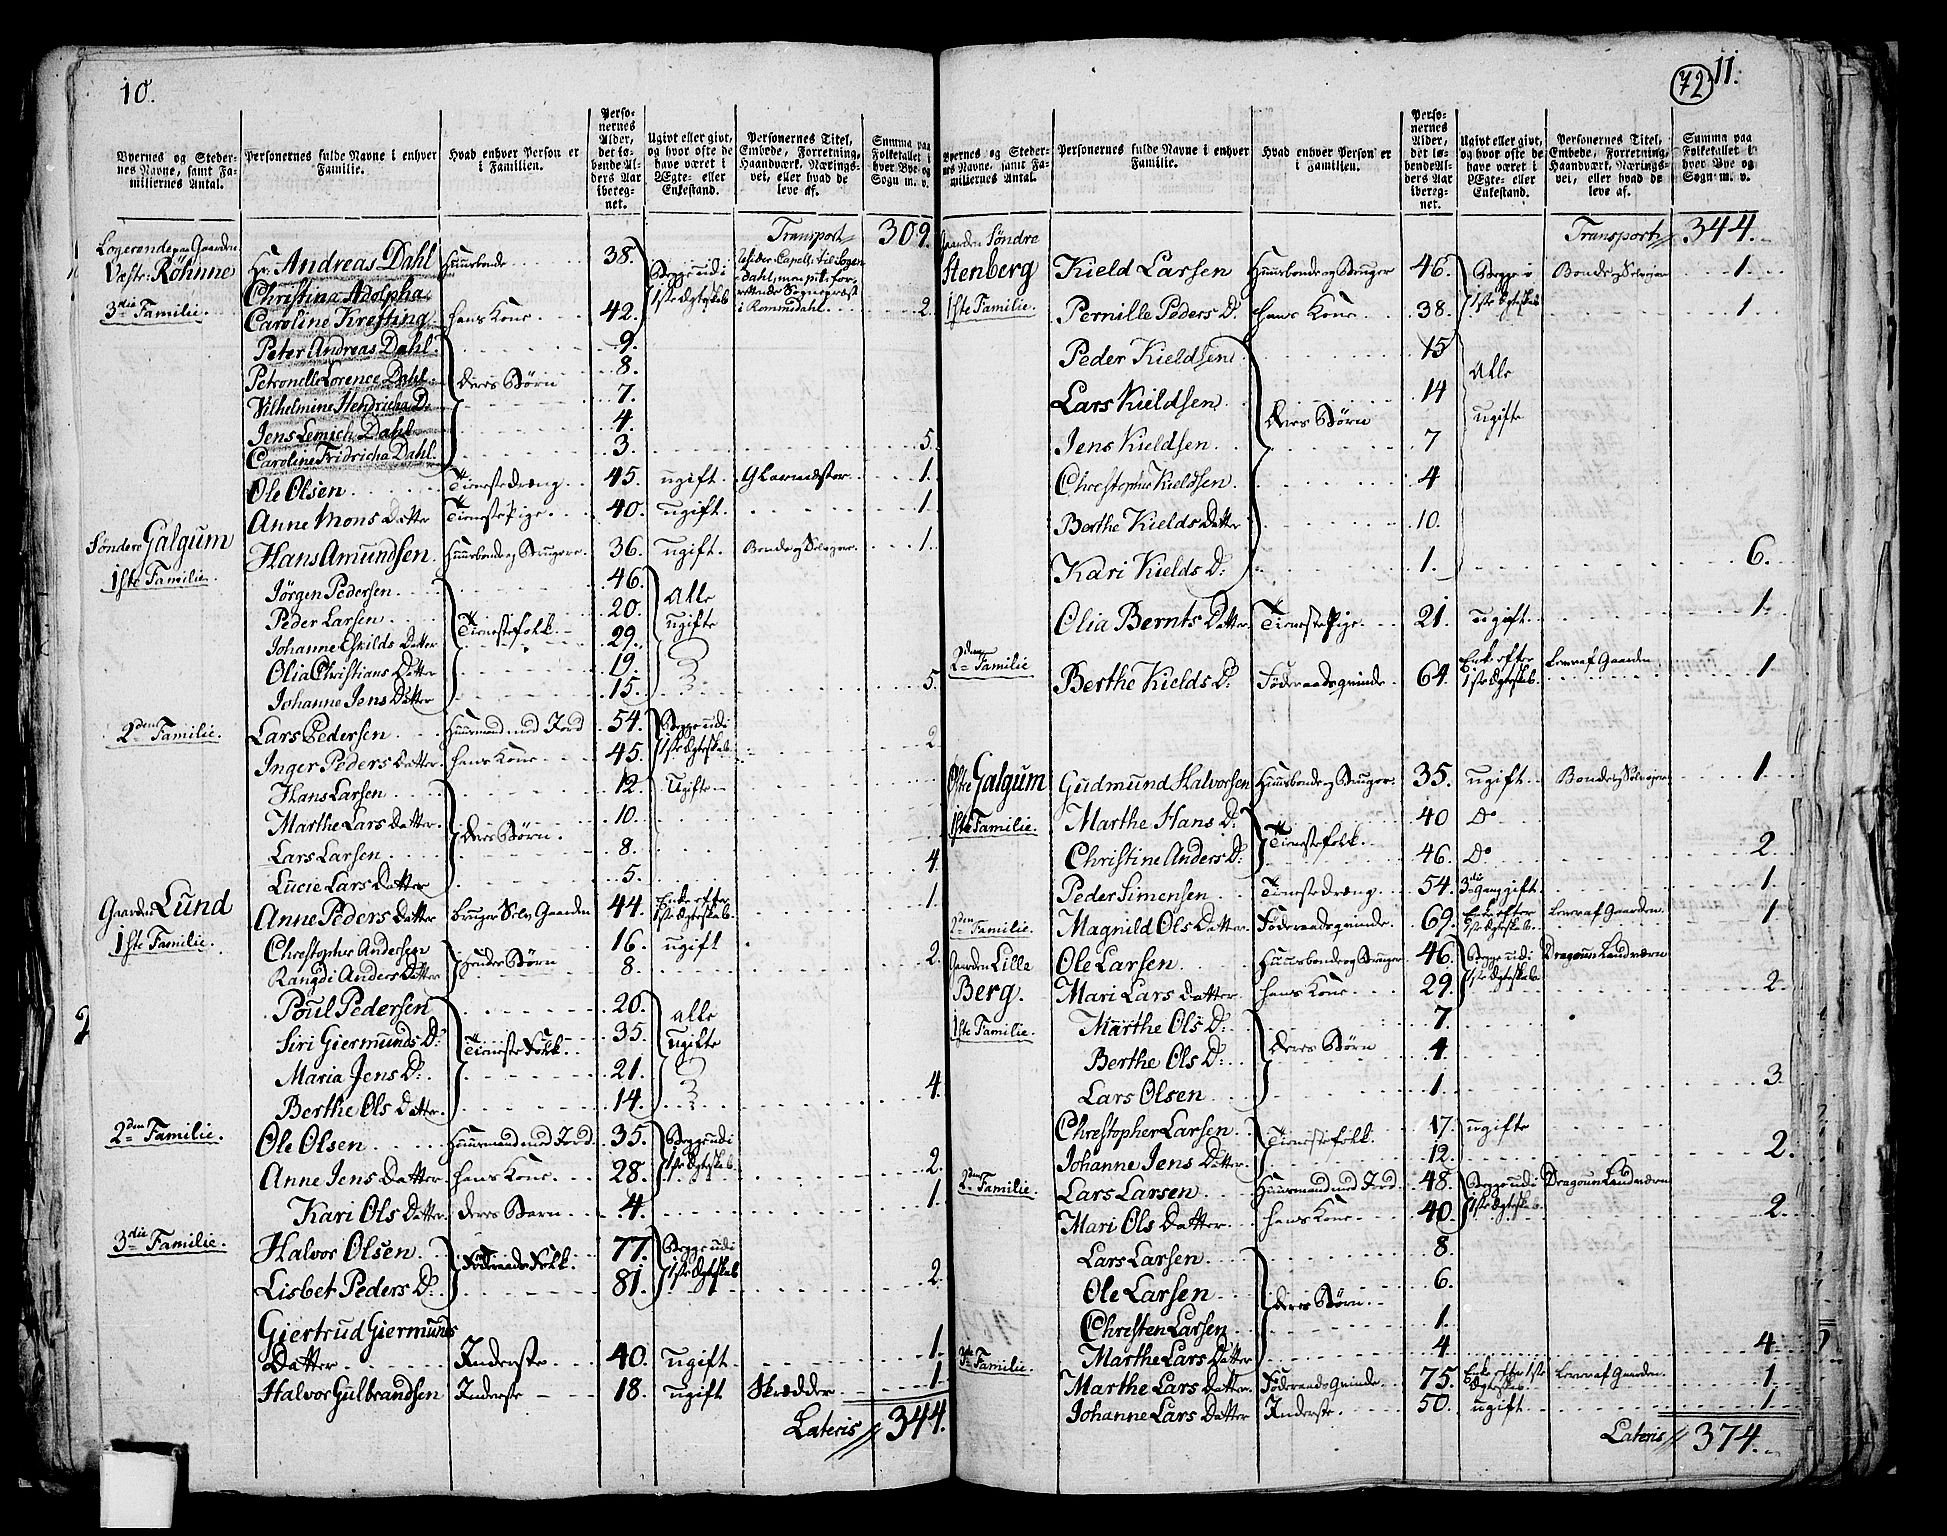 10.
Byernes og Steder-
nes Navne, samt Fa-
miliernes Antal.
Personernes fulde Navne i enhver
Familie.
Hvad enhver Person er
i Familien.
Perso-
nernes
Alder,
det lø-
bende Al-
ders Aar
ibereg-
net.
Ugivt eller givt,
og hvor ofte de
have været i
Ægte- eller
Enkestand.
Personernes Titel,
Embede, Forretning,
Haandværk, Nærings-
vei, eller hvad de
leve af.
Summa paa
Folketallet i
hver Bye og
Sogn m. v.
Transport 309.
Logerende paa Gaarden
Væstr: Röhnne Hr. Andreas Dahl Huusbonde 38. Begge udi
3die Familie. Christina Adolpha
Caroline Krefting hans Kone 42. 1ste Ægteskab i Rommedahl 2.
Peter Andreas Dahl 9.
Petronelle Lorence Dahl deres Börn 8.
Vilhelmine Hendricha D. 7.
Jens Lemich Dahl 4.
Caroline Fridricha Dahl. 3. 5.
Ole Olsen Tienestedræng 45. ugift. Glarmæster 1.
Anne Mons Datter TienestePige 40. ugift. 1.
Söndere Galgum Hans Amundsen. Huusbonde og Brugere. 36. ugift. Bonde og Selvejer 1.
1ste Familie. Jörgen Pedersen 46. Alle
Peder Larsen Tienestefolk 20. ugifte
Johanne Eskilds Datter 29.
Olia Christians Datter 19.
Johanne Jens Datter 15. 5.
2den Familie. Lars Pedersen Huusmand med Jord 54. Begge udi
Inger Peders Datter hans Kone 45. 1ste Ægteskab 2.
Hans Larsen 12. Ugifte
Marthe Lars Datter. deres Börn. 10.
Lars Larsen 8.
Lucie Lars Datter 5. 4.
Gaarden Lund Anne Peders Datter bruger Selv Gaarden 44. Enke efter 1ste Ægteskab 1.
1ste Familie. Christopher Andersen hendes Börn 16. ugift
Rangdi Anders Datter 8. 2.
Poul Pedersen 20. alle
Siri Giermunds D: Tieneste Folk. 35. ugifte
Maria Jens D: 21.
Berthe Ols Datter. 14. 4.
2den Familie. Ole Olsen Huusmand med Jord 35. Begge udi
Anne Jens Datter hans Kone 28. 1ste Ægteskab 2.
Kari Ols Datter. deres Barn 4. 1.
3die Familie. Halvor Olsen Föderaads Folk. 77. Begge udi
Lisbet Peders D: 81. 1ste Ægteskab 2.
Giertrud Giermunds
Datter Inderste 40. ugift. 1.
Halvor Gulbrandsen Inderste 18. ugift Skrædder 1.
Lateris 344.
72
11.
Byernes og Steder-
nes Navne, samt Fa-
miliernes Antal.
Personernes fulde Navne i enhver
Familie.
Hvad enhver Person er
i Familien.
Perso-
nernes
Alder,
det lø-
bende Al-
ders Aar
ibereg-
net.
Ugivt eller givt,
og hvor ofte de
have været i
Ægte- eller
Enkestand.
Personernes Titel,
Embede, Forretning,
Haandværk, Nærings-
vei, eller hvad de
leve af.
Summa paa
Folketallet i
hver Bye og
Sogn m. v.
Transport 344.
Gaarden Söndre
Stenberg Kield Larsen Huusbonde og Bruger 46. Begge i Bonde og Selvejer 1.
1ste Familie. Pernille Peders D: hans Kone 38. 1ste Ægteskab 1.
Peder Kieldsen 15
Lars Kieldsen 14 Alle
Jens Kieldsen. deres Börn 7 ugifte
Christopher Kieldsen. 4
Berthe Kields Datter 10.
Kari Kields D: 1. 6.
Olia Bernts Datter. TienestePige 21. ugift. 1.
2den Familie Berthe Kields D: Föderaadsqvinde 64. Enke efter 1ste Ægteskab. Lever af Gaarden 1.
Östre Galgum Gudmund Halvorsen Huusbonde og Bruger. 35. ugift. Bonde og Selvejer 1.
1ste Familie. Marthe Hans D: Tienestefolk. 40 Do
Christine Anders D: 46. Do 2.
Peder Simensen Tienestedræng. 54. 3die Gang gift. 1.
2den Familie. Magnild Ols Datter. Föderaadsqvinde. 69. Enke efter 1ste Ægteskab. Lever af Gaarden. 1.
Gaarden Lille Ole Larsen Huusbonde og Bruger 46. Begge udi Dragoun Landværn
Berg. Mari Lars Datter hans Kone 29. 1ste Ægteskab 2.
1ste Familie. Marthe Ols D: 7.
Berthe Ols D: deres Börn 4.
Lars Olsen 1. 3.
Christopher Larsen Tienestefolk. 17. ugifte
Johanne Jens Datter. 12. 2.
2den Familie. Lars Larsen Huusmand med Jord 48. Begge udi Dragoun Landværn
Mari Ols Datter hans Kone 40. 1ste Ægteskab. 2.
Lars Larsen 8.
Ole Larsen deres Börn 6.
Christen Larsen 1.
Marthe Lars Datter 4 4.
3die Familie. Marthe Lars Datter. Föderaads Qvinde 75. Enke efter 1ste Ægteskab. Lever af Gaarden. 1.
Johanne Lars Datter Inderste. 50. ugift. 1.
Lateris 374.